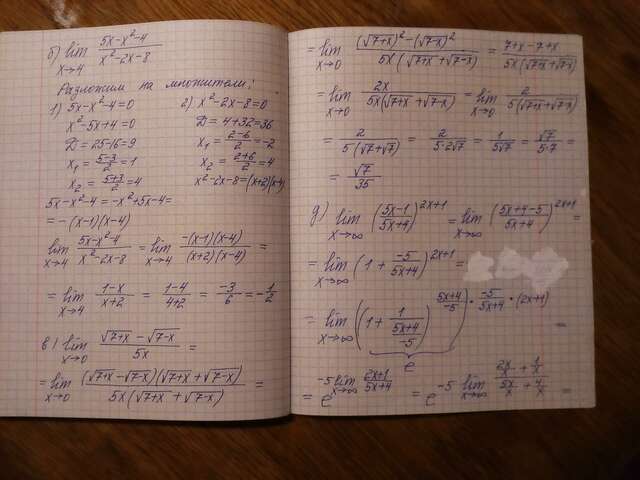 б) lim x→4 (5x-x²-4)/(x²-2x-8)
Разложим на множители:
1) 5x-x²-4=0
x²-5x+4=0
D=25-16=9
x₁=(5-3)/2=1
x₂=(5+3)/2=4
5x-x²-4=-x²+5x-4=
=-(x-1)(x-4)
2) x²-2x-8=0
D=4+32=36
x₁=(2-6)/2=-2
x₂=(2+6)/2=4
x²-2x-8=(x+2)(x-4)
lim x→4 (5x-x²-4)/(x²-2x-8) = lim x→4 (-(x-1)(x-4))/((x+2)(x-4)) =
= lim x→4 (1-x)/(x+2) = (1-4)/(4+2) = -3/6 = -1/2
в) lim x→0 (√7+x - √7-x)/5x =
= lim x→0 ((√7+x - √7-x)(√7+x + √7-x))/(5x(√7+x + √7-x)) =
= lim x→0 ((√7+x)² - (√7-x)²)/(5x(√7+x + √7-x)) = (7+x-7+x)/(5x(√7+x + √7-x))
= lim x→0 2x/(5x(√7+x + √7-x)) = lim x→0 2/(5(√7+x + √7-x))
= 2/(5(√7+√7)) = 2/(5·2√7) = 1/(5√7) = √7/(5·7) =
= √7/35
д) lim x→∞ ((5x-1)/(5x+4))^(2x+1) = lim x→∞ ((5x+4-5)/(5x+4))^(2x+1) =
= lim x→∞ (1 + -5/(5x+4))^(2x+1) =
= lim x→∞ ((1 + 1/((5x+4)/-5))^((5x+4)/-5))^(· -5/(5x+4) · (2x+1)) =
e
= e^(-5 lim x→∞ (2x+1)/(5x+4)) = e^(-5 lim x→∞ (2x/x + 1/x)/(5x/x + 4/x)) =